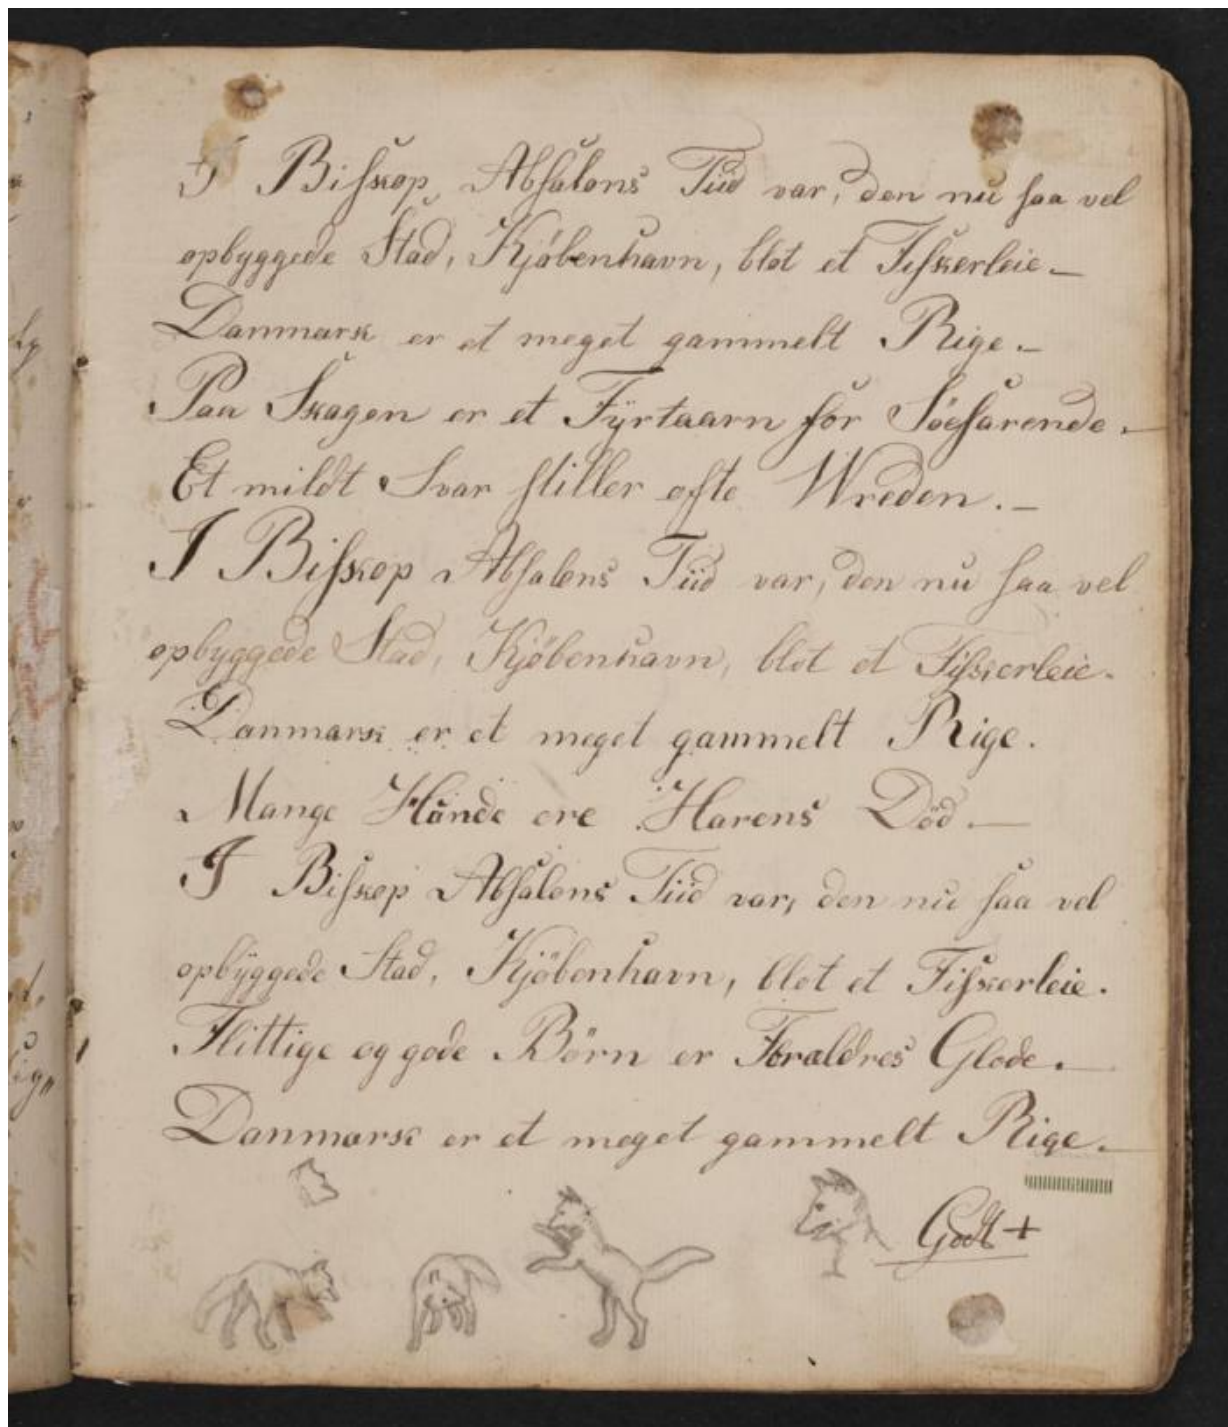 I Biskop Absalons Tiid var, den nu saa vel
opbyggede Stad, Kjöbenhavn, blot et Fiskerleie. _
Danmark er et meget gammelt Rige. _
Paa Skagen er et Fÿrtaarn för Söefarende. _
Et mildt Svar stiller ofte Wreden. _
I Biskop Absalons Tiid var, den nu saa vel
opbyggede Stad, Kjöbenhavn, blot et Fiskerleie.
Danmark er et meget gammelt Rige.
Mange Hunde ere Harens Död. _
I Biskop Absalons Tiid var, den nu saa vel
opbÿggede Stad, Kjöbenhavn, blot et Fiskerleie.
Flittige og gode Börn er Forældres Glæde. _
Danmark er et meget gammelt Rige. _
Godt +